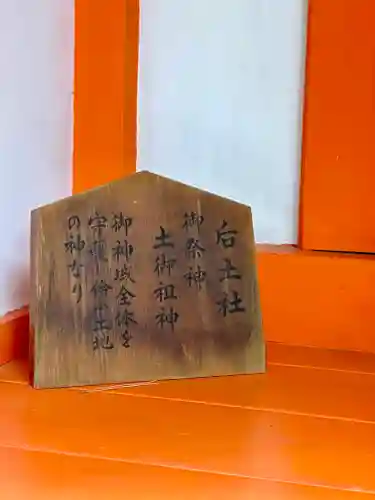 后土社
御祭神
土御祖神
御神域全体を
守護し給う土地
の神なり